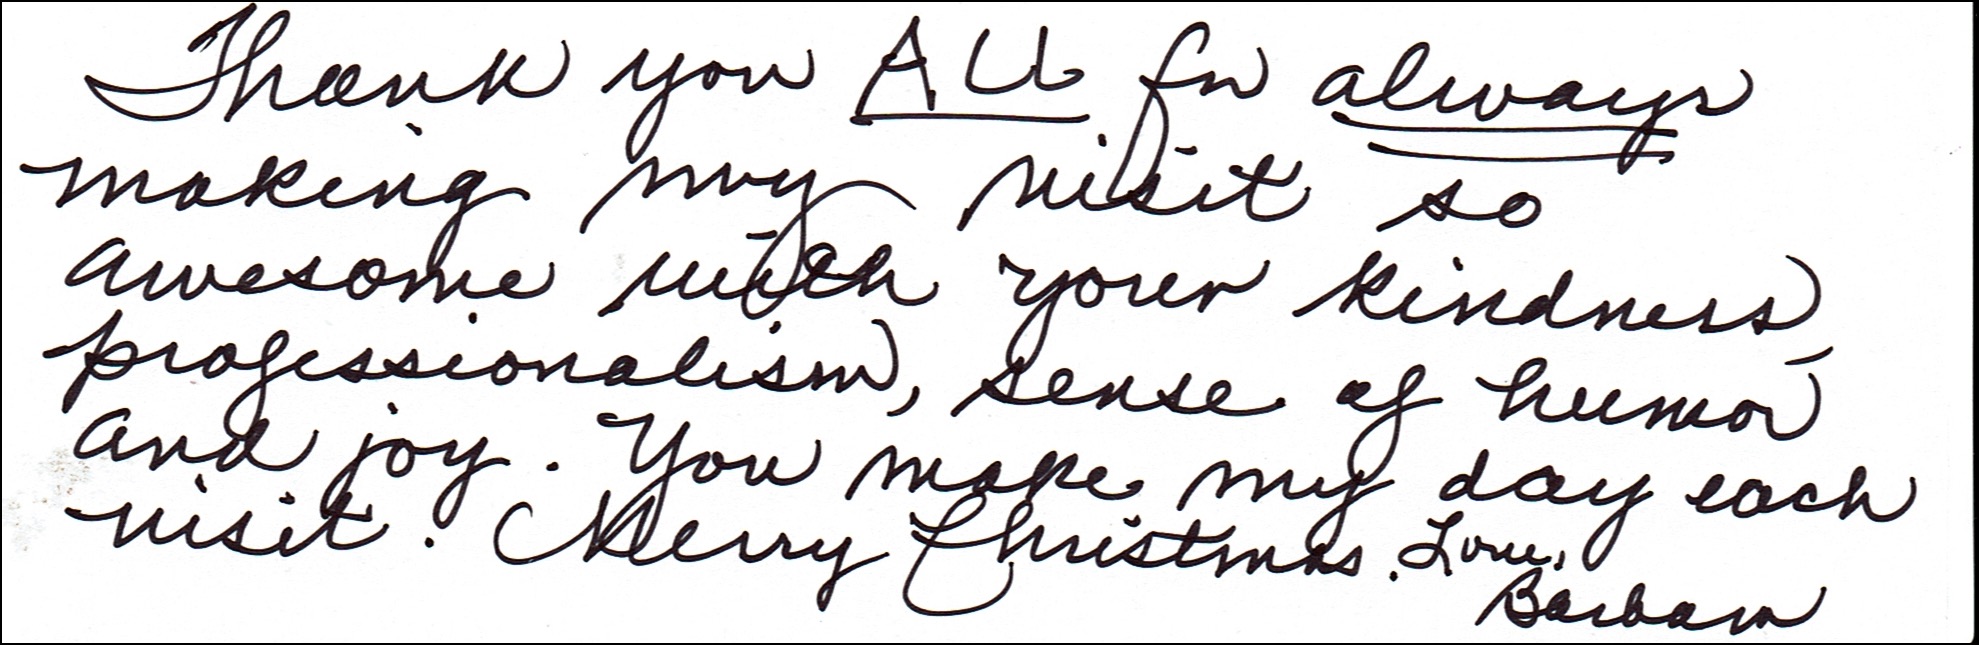 Thank you All for always
making my visit so
awesome with your kindness,
professionalism, sense of humor
and joy. You make my day each
visit. Merry Christmas. Love,
Barbara